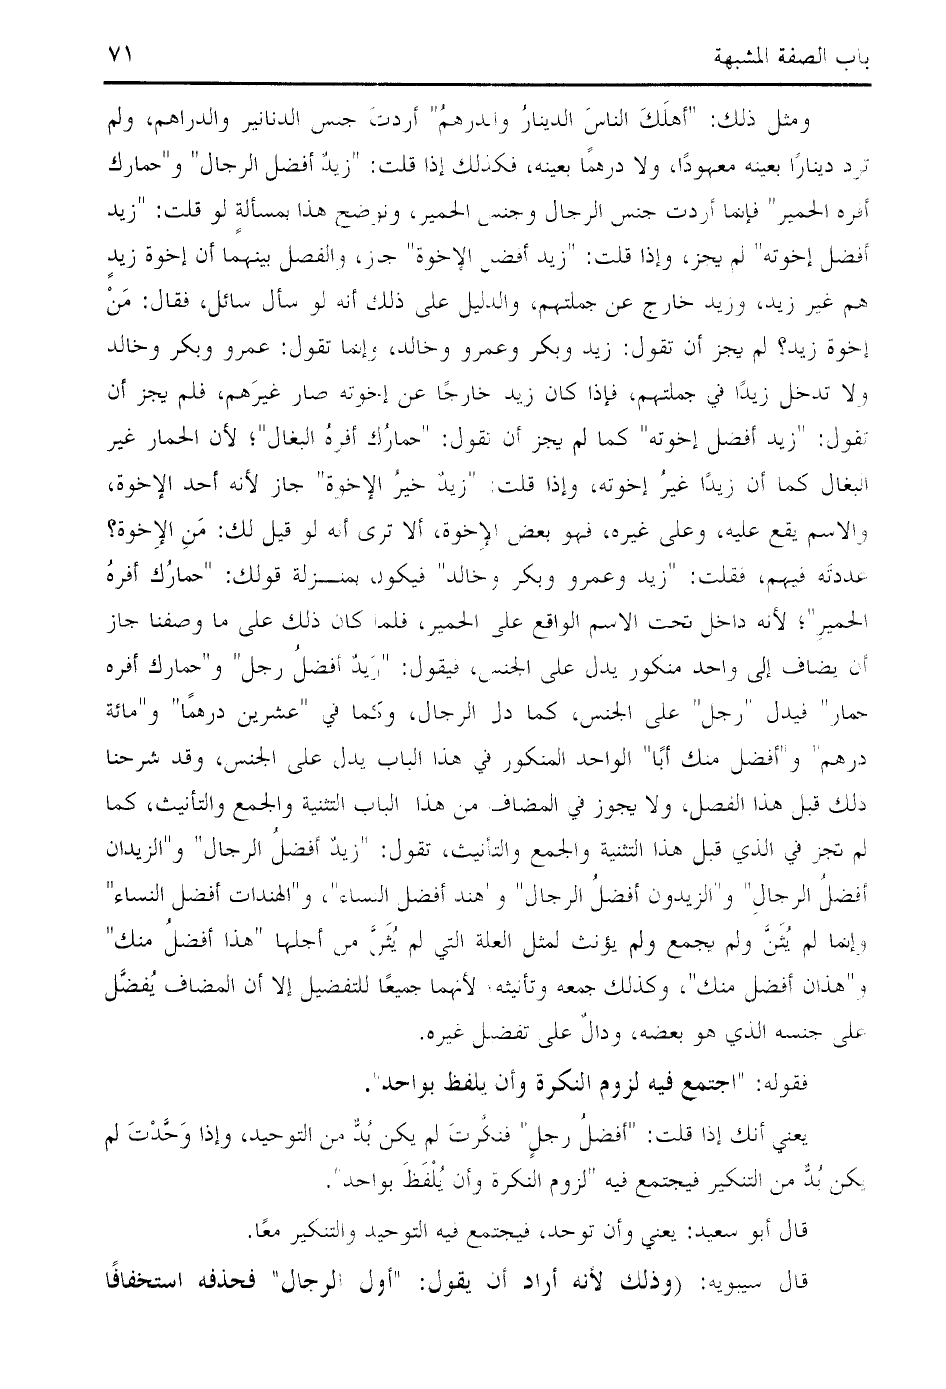 باب الصفة المشبهة ٧١
ومثل ذلك: "أهلَكَ الناسَ الدينارُ والدرهمُ" أردتَ جنس الدنانير والدراهم، ولم
ترد دينارًا بعينه معهودًا، ولا درهمًا بعينه، فكذلك إذا قلت: "زيدٌ أفضل الرجال" و"حمارك
أفره الحمير" فإنما أردت جنس الرجال وجنس الحمير، ونوضح هذا بمسألةٍ لو قلت: "زيد
أفضل إخوته" لم يجز، وإذا قلت: "زيد أفضل الإخوة" جاز، والفصل بينهما أن إخوة زيدٍ
هم غير زيد، وزيد خارج عن جملتهم، والدليل على ذلك أنه لو سأل سائل، فقال: مَنْ
إخوة زيد؟ لم يجز أن تقول: زيد وبكر وعمرو وخالد، وإنما تقول: عمرو وبكر وخالد
ولا تدخل زيدًا في جملتهم، فإذا كان زيد خارجًا عن إخوته صار غيرَهم، فلم يجز أن
تقول: "زيد أفضل إخوته" كما لم يجز أن تقول: "حمارُك أفرهُ البغال"؛ لأن الحمار غير
البغال كما أن زيدًا غيرُ إخوته، وإذا قلت: "زيدٌ خيرُ الإخوة" جاز لأنه أحد الإخوة،
والاسم يقع عليه، وعلى غيره، فهو بعض الإخوة، ألا ترى أنه لو قيل لك: مَنِ الإخوة؟
عددتَه فيهم، فقلت: "زيد وعمرو وبكر وخالد" فيكون بمنـزلة قولك: "حمارُك أفرهُ
الحميرِ"؛ لأنه داخل تحت الاسم الواقع على الحمير، فلما كان ذلك على ما وصفنا جاز
أن يضاف إلى واحد منكور يدل على الجنس، فيقول: "زيدٌ أفضلُ رجل" و"حمارك أفره
حمار" فيدل "رجل" على الجنس، كما دل الرجال، وكما في "عشرين درهمًا" و"مائة
درهم" و"أفضل منك أبًا" الواحد المنكور في هذا الباب يدل على الجنس، وقد شرحنا
ذلك قبل هذا الفصل، ولا يجوز في المضاف من هذا الباب التثنية والجمع والتأنيث، كما
لم تجز في الذي قبل هذا التثنية والجمع والتأنيث، تقول: "زيدٌ أفضلُ الرجال" و"الزيدان
أفضلُ الرجال" و"الزيدون أفضلُ الرجال" و"هند أفضل النساء"، و"الهندات أفضل النساء"
وإنما لم يُثَنَّ ولم يجمع ولم يؤنث لمثل العلة التي لم يُثَنَّ من أجلها "هذا أفضلُ منك"
و"هذان أفضل منك"، وكذلك جمعه وتأنيثه؛ لأنهما جميعًا للتفضيل إلا أن المضاف يُفضَّل
على جنسه الذي هو بعضه، ودالٌ على تفضل غيره.
فقوله: "اجتمع فيه لزوم النكرة وأن يلفظ بواحد".
يعني أنك إذا قلت: "أفضلُ رجلٍ" فنكَّرتَ لم يكن بُدٌّ من التوحيد، وإذا وَحَّدْتَ لم
يكن بُدٌّ من التنكير فيجتمع فيه "لزوم النكرة وأن يُلْفَظَ بواحد".
قال أبو سعيد: يعني وأن توحد، فيجتمع فيه التوحيد والتنكير معًا.
قال سيبويه: (وذلك لأنه أراد أن يقول: "أول الرجال" فحذفه استخفافًا